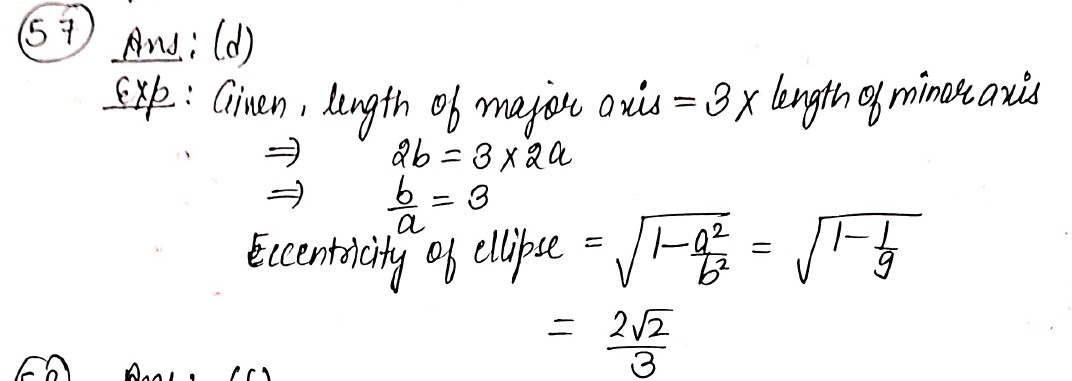 57 Ans: (d)
Exp: Given, length of major axis = 3 x length of minor axis
⇒ 2b = 3 x 2a
⇒ b/a = 3
Eccentricity of ellipse = √(1-a²/b²) = √(1-1/9)
= 2√2/3
Ans: (c)